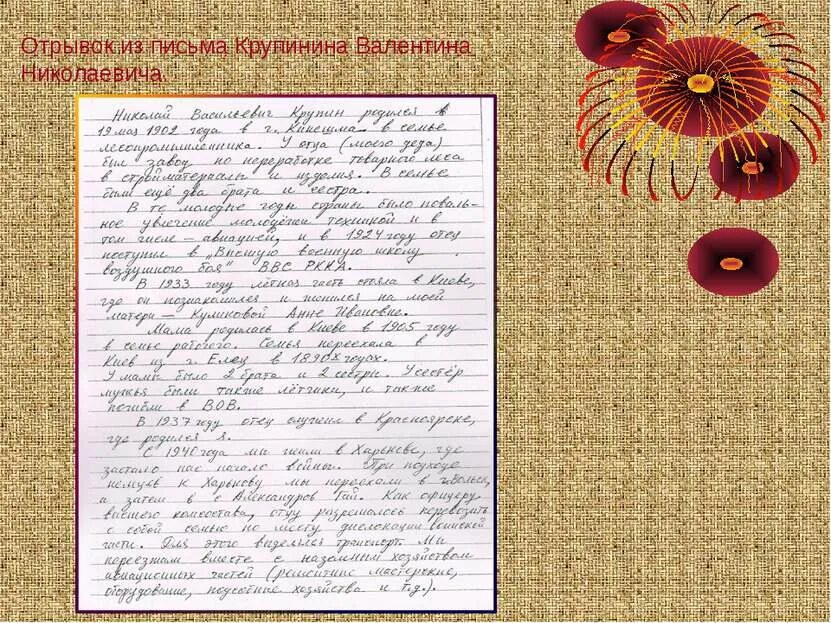 Отрывок из письма Крупинина Валентина
Николаевича.
Николай Васильевич Крупин родился в
19 мая 1902 года в г. Кинешма в семье
лесопромышленника. У отца (моего деда)
был завод по переработке товарного леса
в стройматериалы и изделия. В семье
были ещё два брата и сестра.
В те молодые годы страны было поваль-
ное увлечение молодёжи техникой и в
том числе – авиацией, и в 1924 году отец
поступил в „Высшую военную школу
воздушного боя" ВВС РККА.
В 1933 году лётная часть стояла в Киеве,
где он познакомился и женился на моей
матери – Куликовой Анне Ивановне.
Мама родилась в Киеве в 1905 году
в семье рабочего. Семья переехала в
Киев из г. Елец в 1890х годах.
У мамы было 2 брата и 2 сестры. У сестёр
мужья были также лётчики, и также
погибли в ВОВ.
В 1937 году отец служил в Красноярске,
где родился я.
С 1940 года мы жили в Харькове, где
застало нас начало войны. При подходе
немцев к Харькову мы переехали в г. Вольск,
а затем в с Александров Гай. Как офицеру
высшего комсостава, отцу разрешалось перевозить
с собой семью по месту дислокации воинской
части. Для этого выделялся транспорт. Мы
переезжали вместе с наземным хозяйством
авиационных частей (ремонтные мастерские,
оборудование, подсобные хозяйства и т.д.).